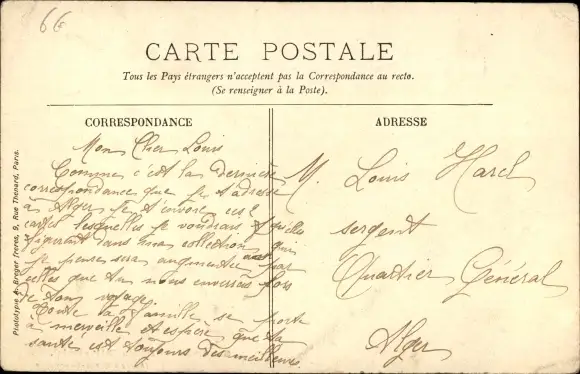 66
CARTE POSTALE
Tous les Pays étrangers n'acceptent pas la Correspondance au recto.
(Se renseigner à la Poste).
CORRESPONDANCE
Mon Cher Louis
Comme c'est la dernière
correspondance que je t'adresse
à Alger je t'envoie
cartes lesquelles je voudrais
dans ma collection qui
je pense sera augmentée par
celles que tu nous enverras
de ton voyage.
Toute la famille se porte
à merveille et espère que ta
santé est toujours des meilleures
ADRESSE
M. Louis Harel
sergent
Quartier Général
Alger
Phototypie A. Breger frères, 9, Rue Thénard, Paris.